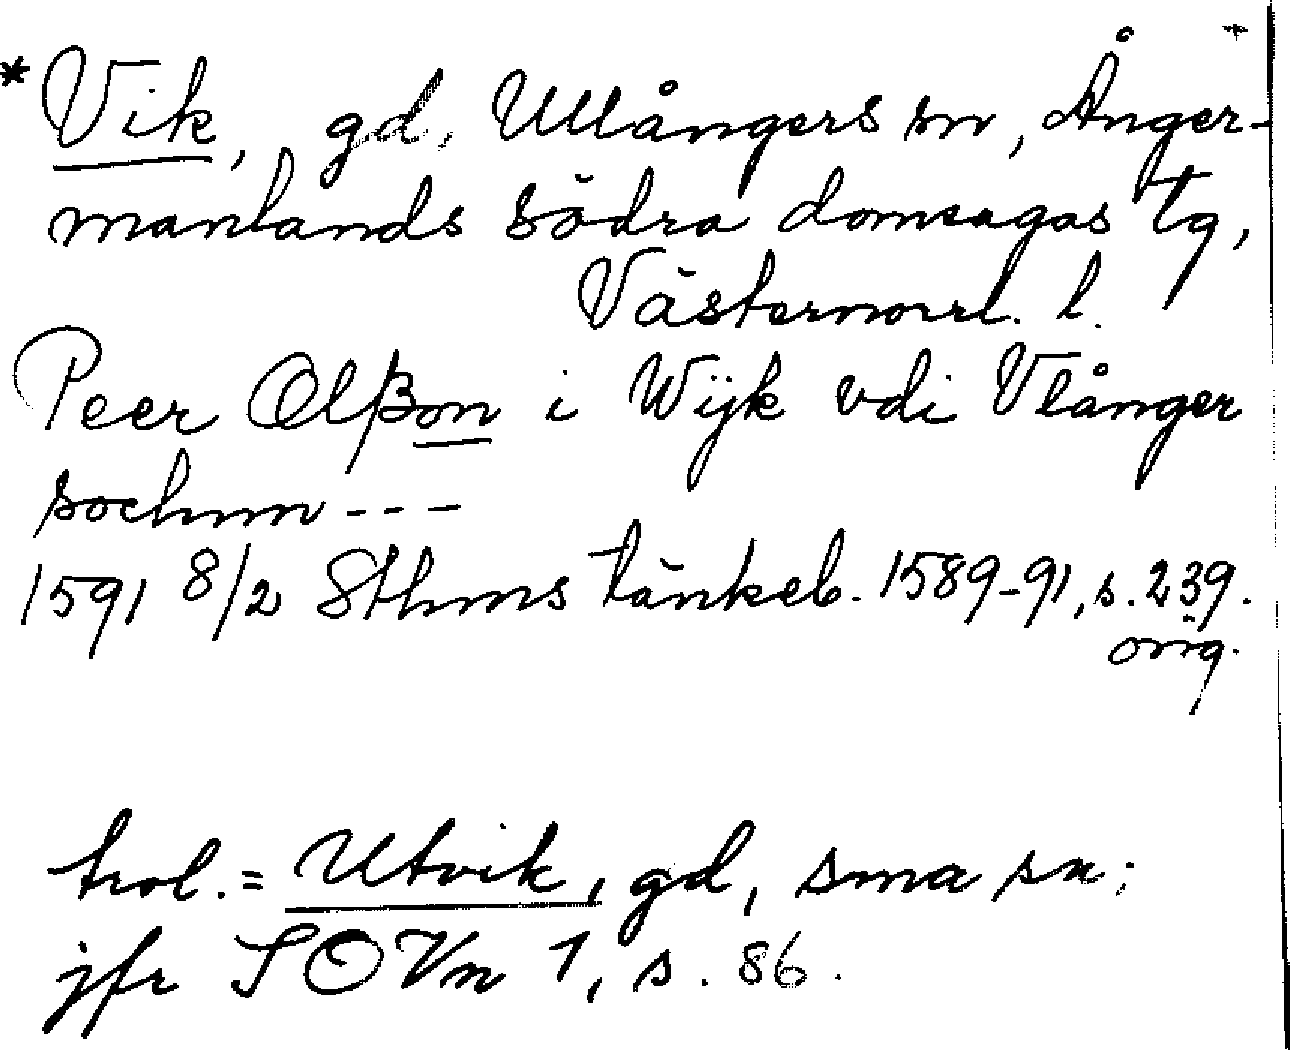 +
*Vik, gd, Ullångers sn, Ånger-
manlands södra domsagas tg,
Västernorrl. l.
Peer Olßon i Wijk vdi Vlånger
sochnn ---
1591 8/2 Sthms tänkeb. 1589-91, s. 239.
orig.
trol. = Utvik, gd, sma sn;
jfr SOVn 1, s. 86.